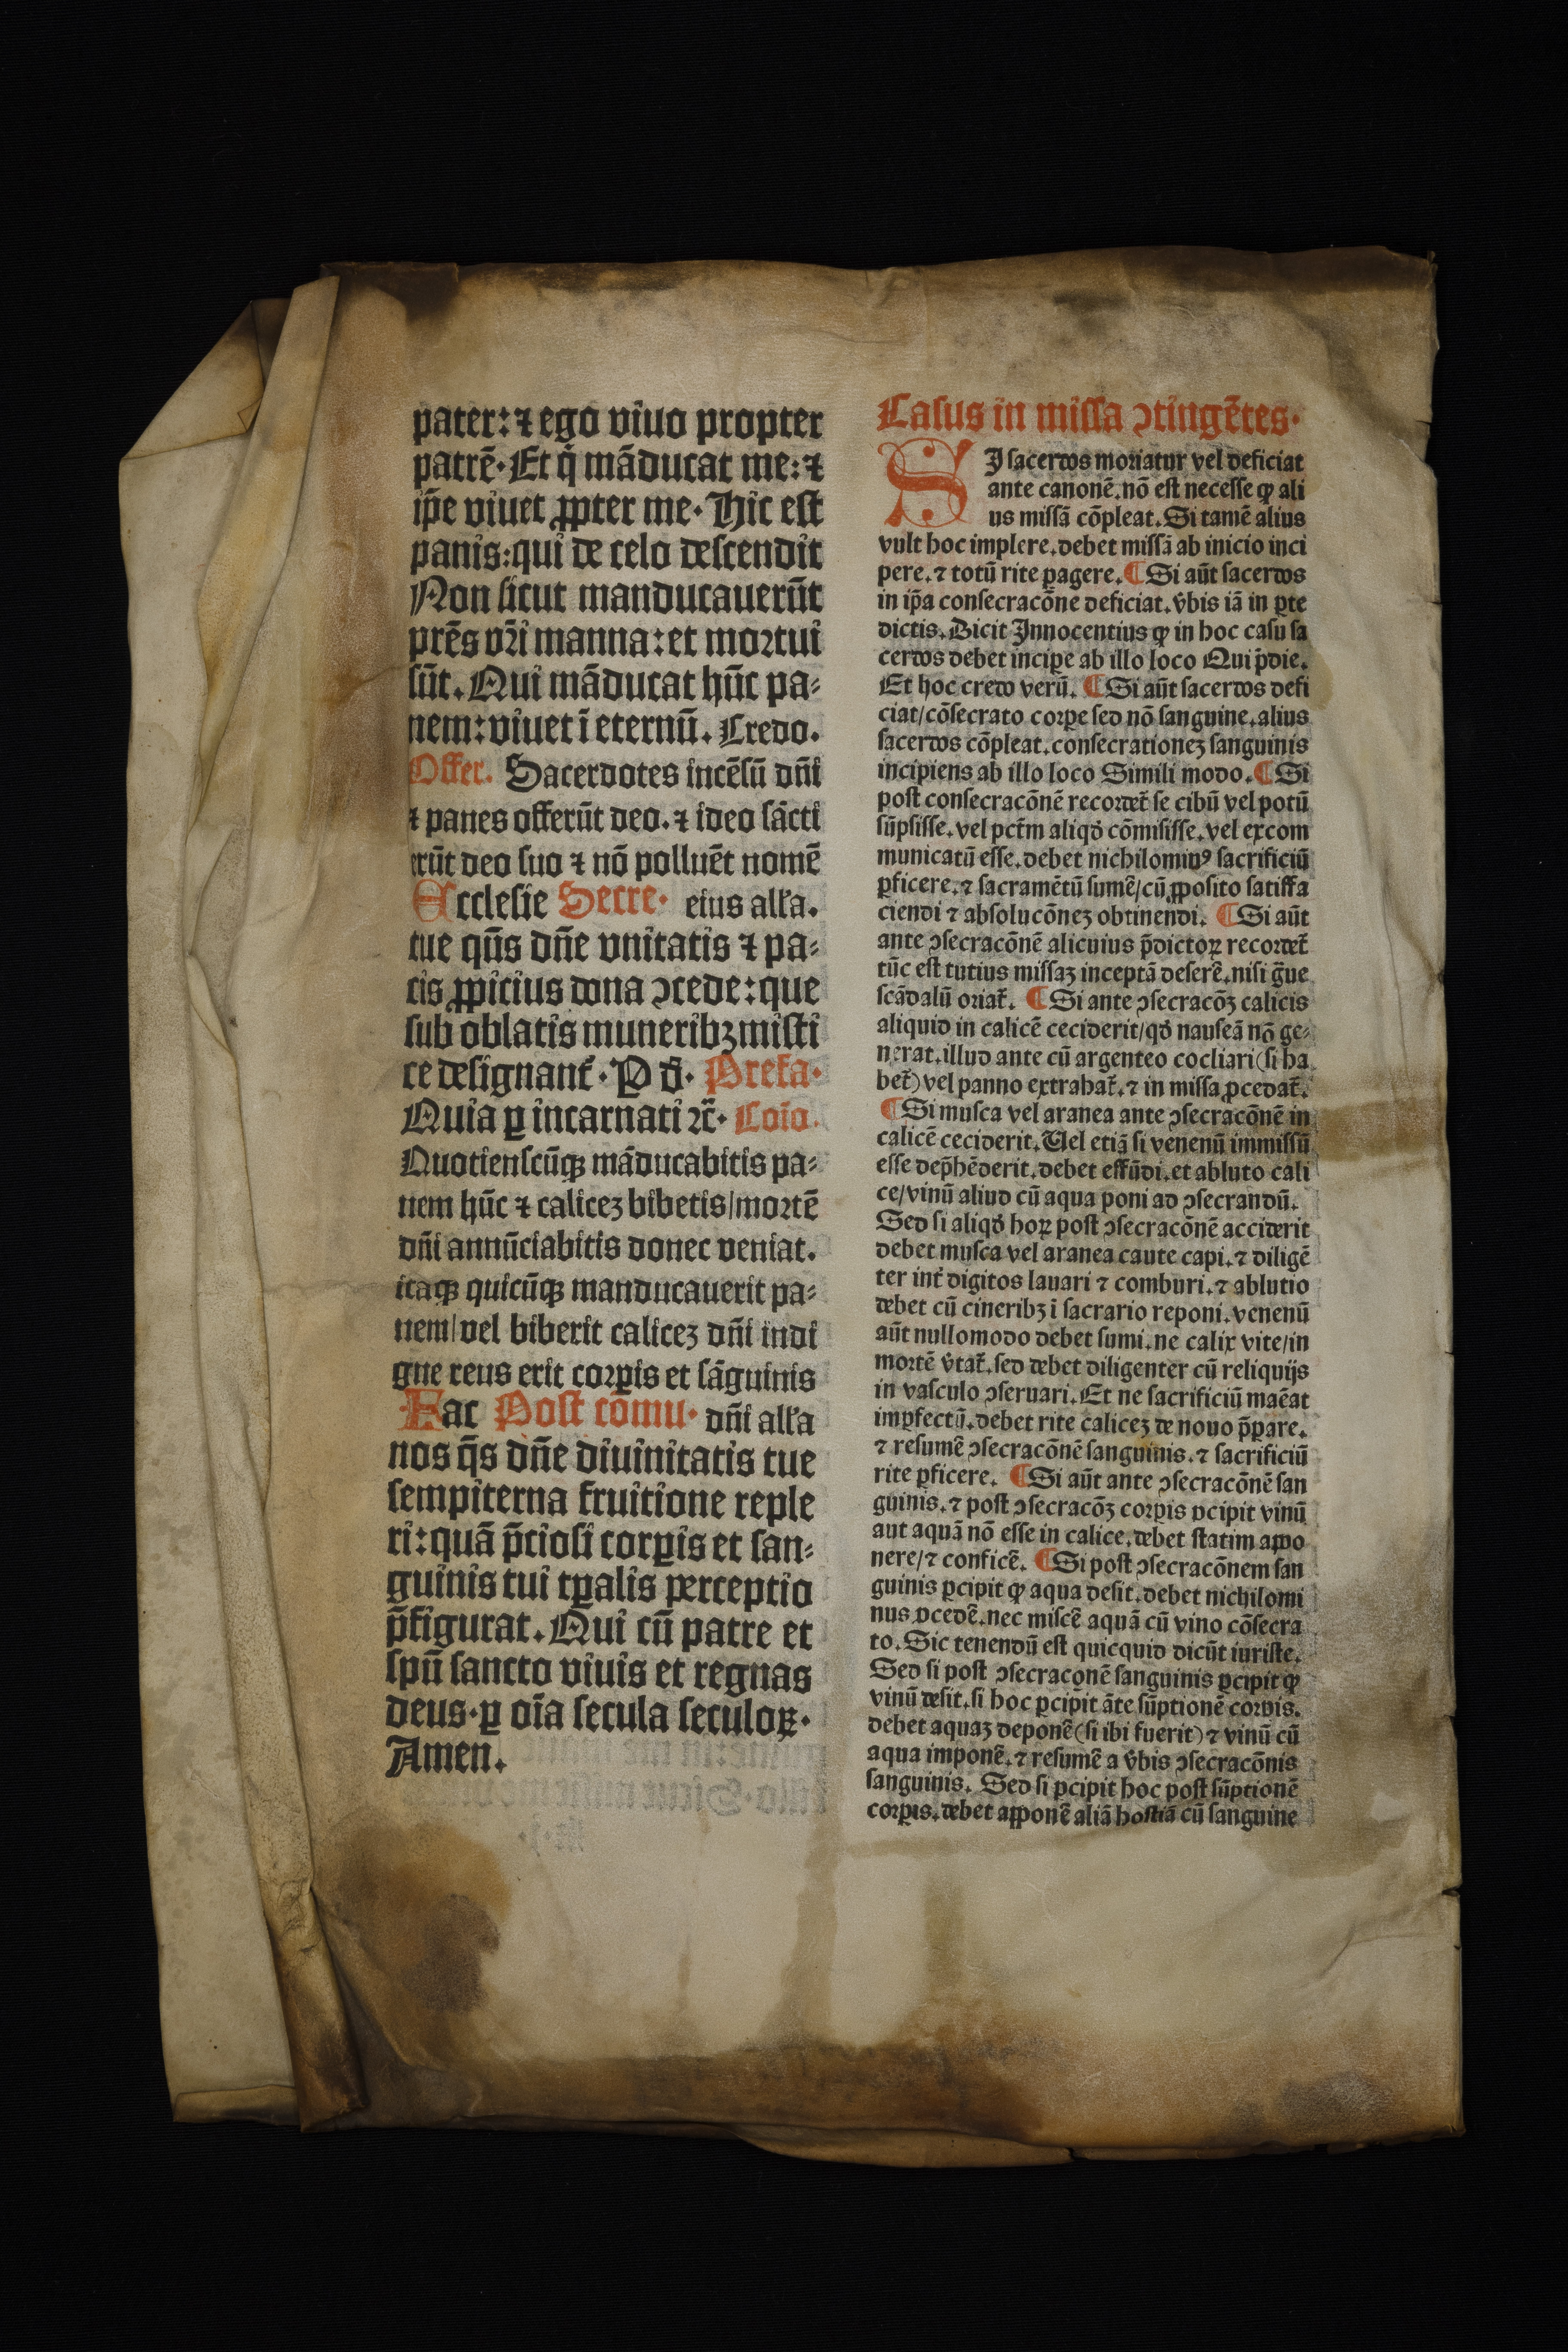 pater: ⁊ ego viuo propter
patrē. Et q̇ māducat me: ⁊
ip̄e viuet ꝓpter me. Hic est
panis: qui de celo descendit
Non sicut manducauerūt
pr̄es vr̄i manna: et mortui
sūt. Qui māducat hūc pa⸗
nem: viuet ī eternū. Credo.
Offer. Sacerdotes incēsū dn̄i
⁊ panes offerūt deo. ⁊ ideo sācti
erūt deo suo ⁊ nō polluēt nomē
Ecclesie Secre. eius all'a.
tue qūs dn̄e vnitatis ⁊ pa⸗
cis ꝓpicius dona ɔcede: que
sub oblatis muneribꝫ misti
ce designant᷑. P d. Prefa.
Quia ꝑ incarnati ⁊c̄. Cōio.
Quotienscūqꝫ māducabitis pa⸗
nem hūc ⁊ caliceꝫ bibetis/mortē
dn̄i annūciabitis donec veniat.
itaqꝫ quicūqꝫ manducauerit pa⸗
nem/vel biberit caliceꝫ dn̄i indi
gne reus erit corꝑis et sāguinis
Fac Post cōmu. dn̄i all'a
nos q̄s dn̄e diuinitatis tue
sempiterna fruitione reple
ri: quā p̄ciosi corꝑis et san⸗
guinis tui tꝑalis perceptio
p̄figurat. Qui cū patre et
spū sancto viuis et regnas
deus. ꝑ oīa secula seculoꝝ.
Amen.
Casus in missa ɔtingētes.
SI sacerdos moriatur vel deficiat
ante canonē. nō est necesse ꝙ ali
us missā cōpleat. Si tamē alius
vult hoc implere. debet missā ab inicio inci
pere. ⁊ totū rite ꝑagere. ¶ Si aūt sacerdos
in ip̄a consecracōne deficiat. v̇bis iā in ꝑte
dictis. Dicit Innocentius ꝙ in hoc casu sa
cerdos debet inciꝑe ab illo loco Qui p̄die.
Et hoc credo verū. ¶ Si aūt sacerdos defi
ciat/cōsecrato corꝑe sed nō sanguine. alius
sacerdos cōpleat. consecrationeꝫ sanguinis
incipiens ab illo loco Simili modo. ¶ Si
post consecracōnē recordet᷑ se cibū vel potū
sūpsisse. vel pctm̄ aliqd̓ cōmisisse. vel excom
municatū esse. debet nichilominꝰ sacrificiū
ꝑficere. ⁊ sacramētū sumē/cū ꝓposito satisfa
ciendi ⁊ absolucōneꝫ obtinendi. ¶ Si aūt
ante ɔsecracōnē alicuius p̄dictoꝝ recordet᷑
tūc est tutius missaꝫ inceptā deserē. nisi g̃ue
scādalū oriat᷑. ¶ Si ante ɔsecracōꝫ calicis
aliquid in calicē ceciderit/qd̓ nauseā nō ge⸗
nerat. illud ante cū argenteo cocliari (si ha
bet᷑) vel panno extrahat᷑. ⁊ in missa ꝓcedat᷑.
¶ Si musca vel aranea ante ɔsecracōnē in
calicē ceciderit. Uel etiā si venenū immissū
esse dep̄hēderit. debet effūdi. et abluto cali
ce/vinū aliud cū aqua poni ad ɔsecrandū.
Sed si aliqd̓ hoꝝ post ɔsecracōnē acciderit
debet musca vel aranea caute capi. ⁊ diligē
ter int̓ digitos lauari ⁊ comburi. ⁊ ablutio
debet cū cineribꝫ ī sacrario reponi. venenū
aūt nullomodo debet sumi. ne calix vite/in
mortē v̓tat᷑. sed debet diligenter cū reliquijs
in vasculo ɔseruari. Et ne sacrificiū maēat
imꝑfectū. debet rite caliceꝫ de nouo p̄ꝑare.
⁊ resumē ɔsecracōnē sanguinis. ⁊ sacrificiū
rite ꝑficere. ¶ Si aūt ante ɔsecracōnē san
guinis. ⁊ post ɔsecracōꝫ corꝑis ꝑcipit vinū
aut aquā nō esse in calice. debet statim appo
nere/⁊ conficē. ¶ Si post ɔsecracōnem san
guinis ꝑcipit ꝙ aqua desit. debet nichilomi
nus ꝓcedē. nec miscē aquā cū vino cōsecra
to. Sic tenendū est quicquid dicūt iuriste.
Sed si post ɔsecraconē sanguinis ꝑcipit ꝙ
vinū desit. si hoc ꝑcipit āte sūptionē corꝑis.
debet aquaꝫ deponē (si ibi fuerit) ⁊ vinū cū
aqua imponē. ⁊ resumē a v̓bis ɔsecracōnis
sanguinis. Sed si ꝑcipit hoc post sūptionē
corꝑis. debet apponē aliā hostiā cū sanguine